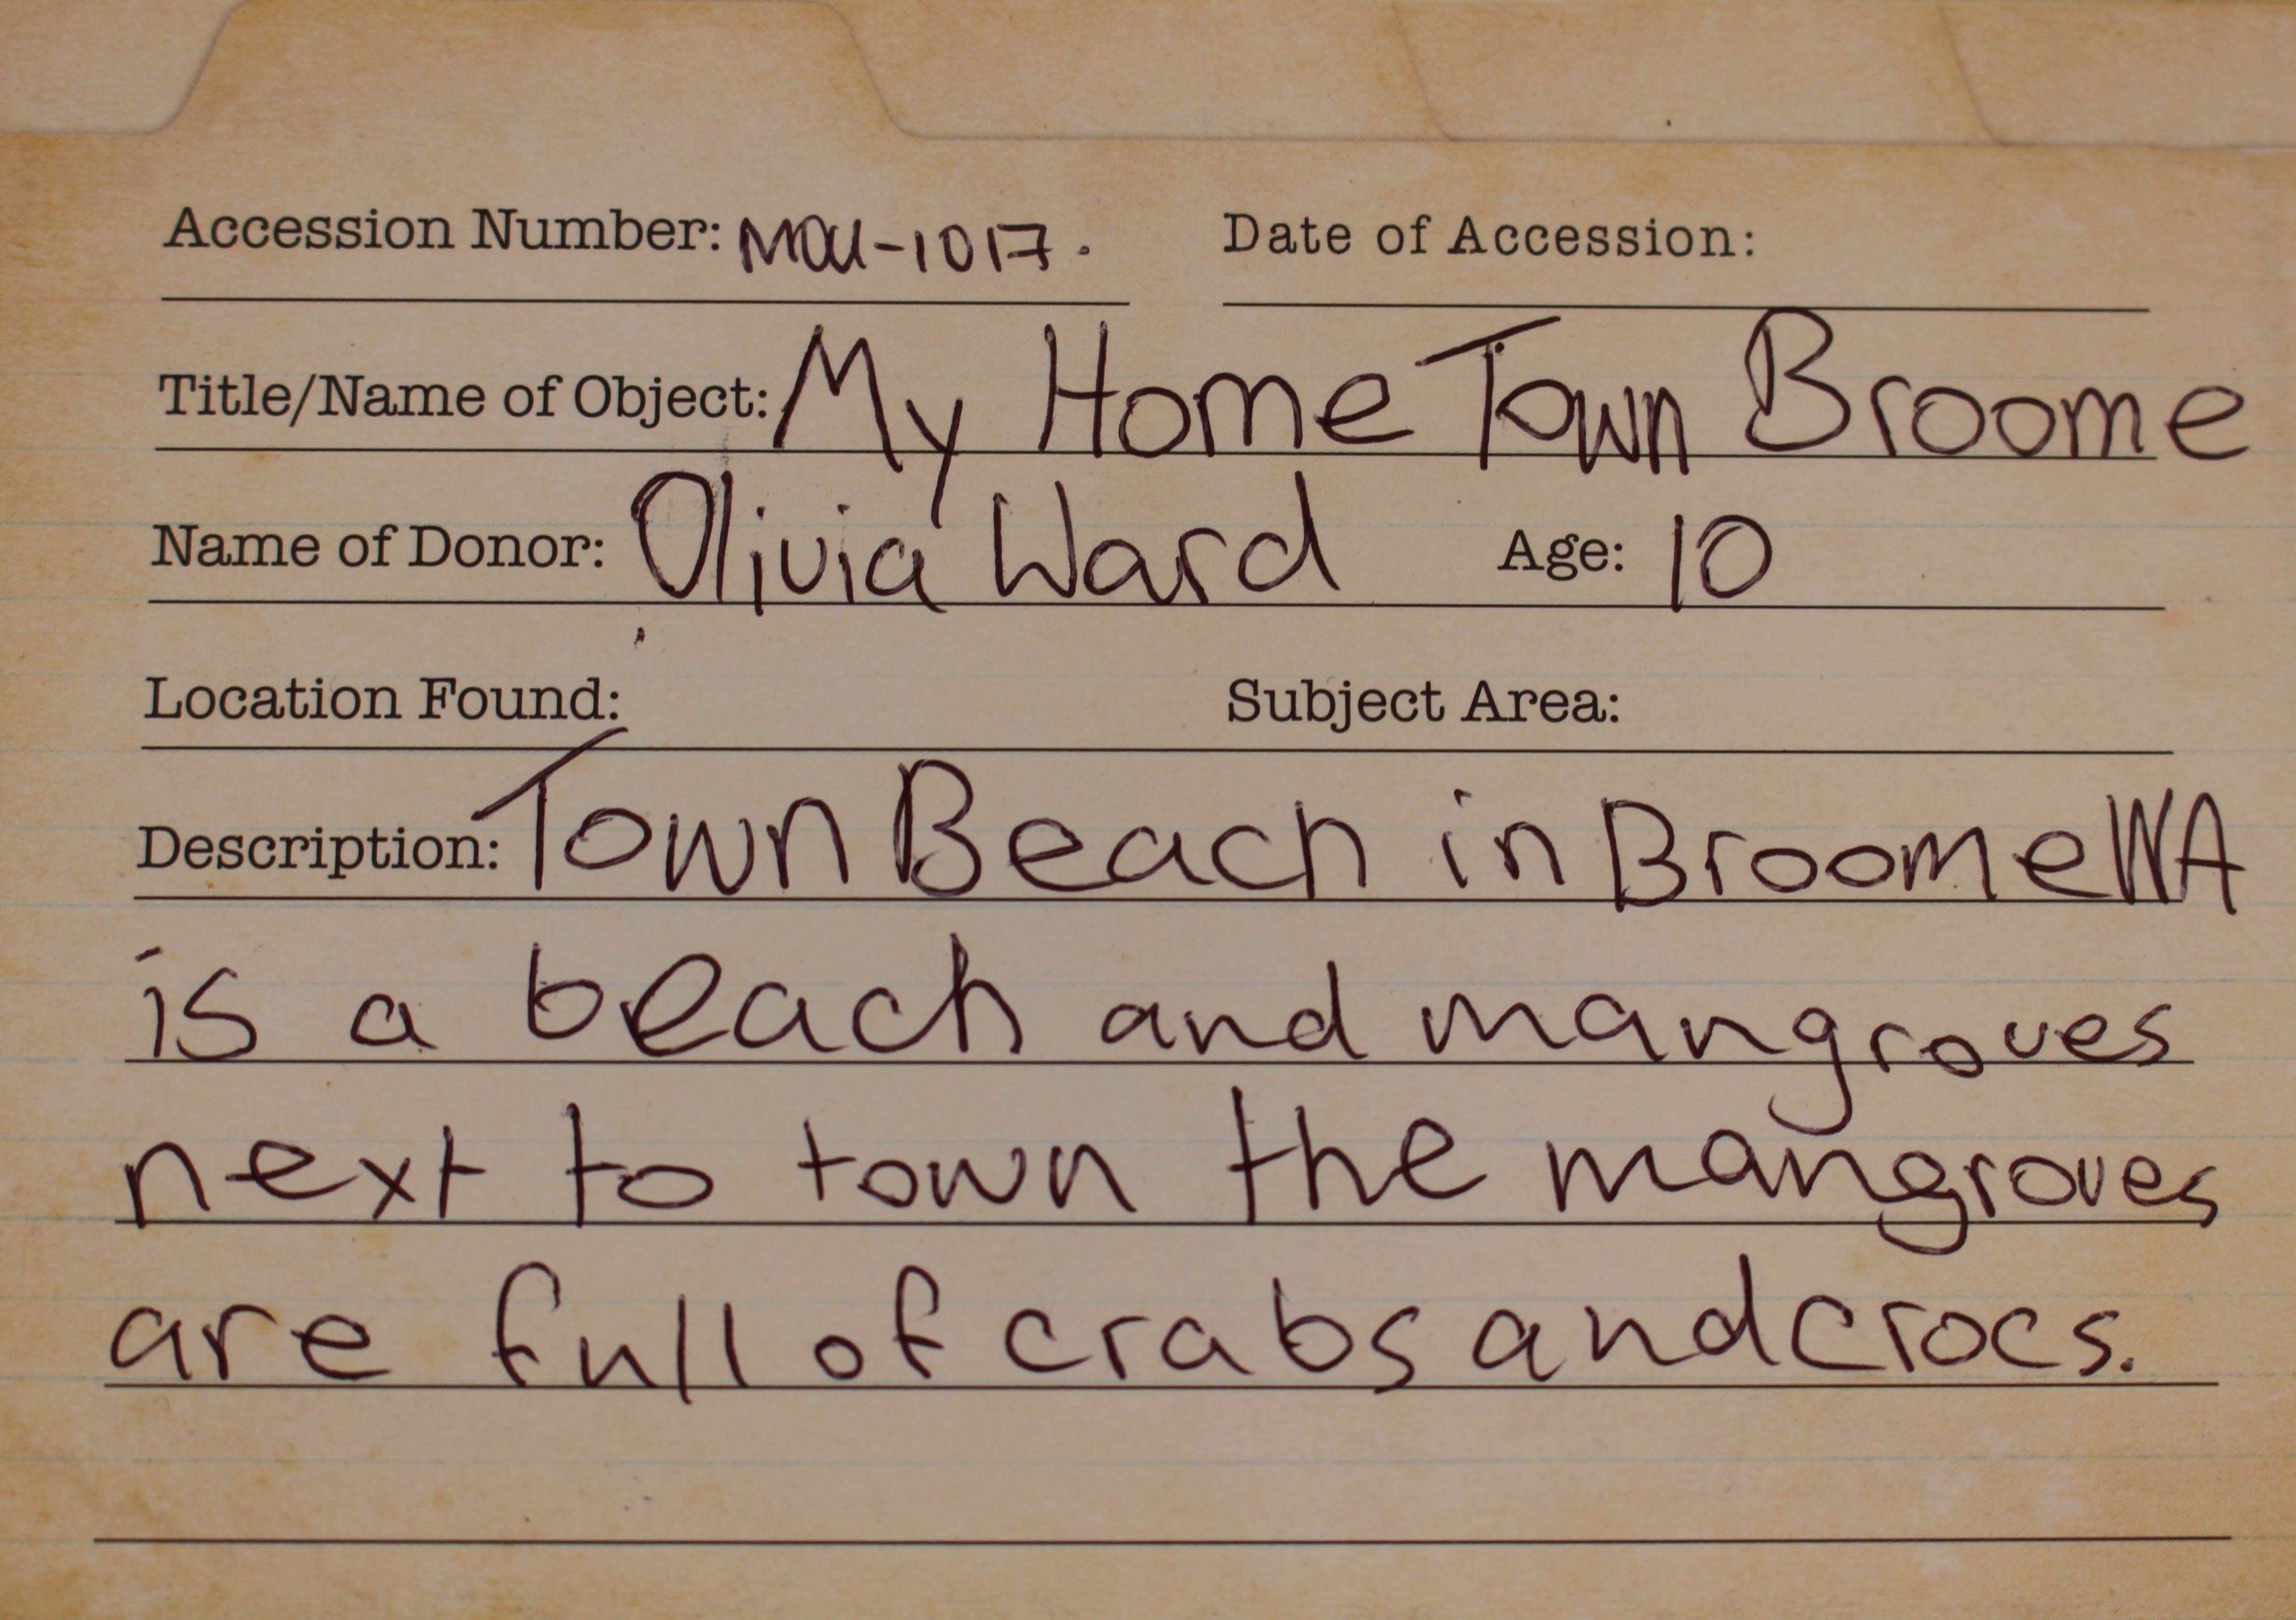 Accession Number: MOU-1017. Date of Accession:
Title/Name of Object: My Home Town Broome
Name of Donor: Olivia Ward Age: 10
Location Found: Subject Area:
Description: Town Beach in Broome WA
is a beach and mangroves
next to town the mangroves
are full of crabs and crocs.